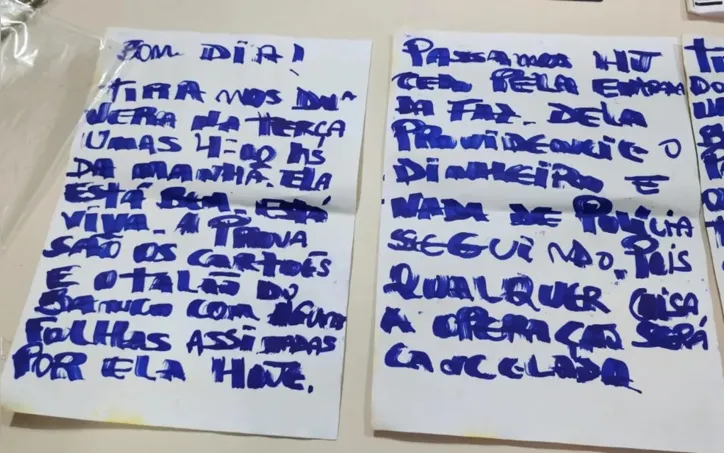 BOM DIA!
TIRAMOS DO
VERA NA TERÇA
UMAS 4:00 HS
DA MANHÃ. ELA
ESTÁ BEM ESTÁ
VIVA. A PROVA
SÃO OS CARTÕES
E O TALÃO DO
BANCO COM ALGUMAS
FOLHAS ASSINADAS
POR ELA HOJE.
PASSAMOS HJ
CEDO PELA ENTRADA
DA FAZ. DELA
PROVIDENCIE O
DINHEIRO E
NADA DE POLÍCIA
SEGUINDO. POIS
QUALQUER COISA
A OPERAÇÃO SERÁ
CANCELADA